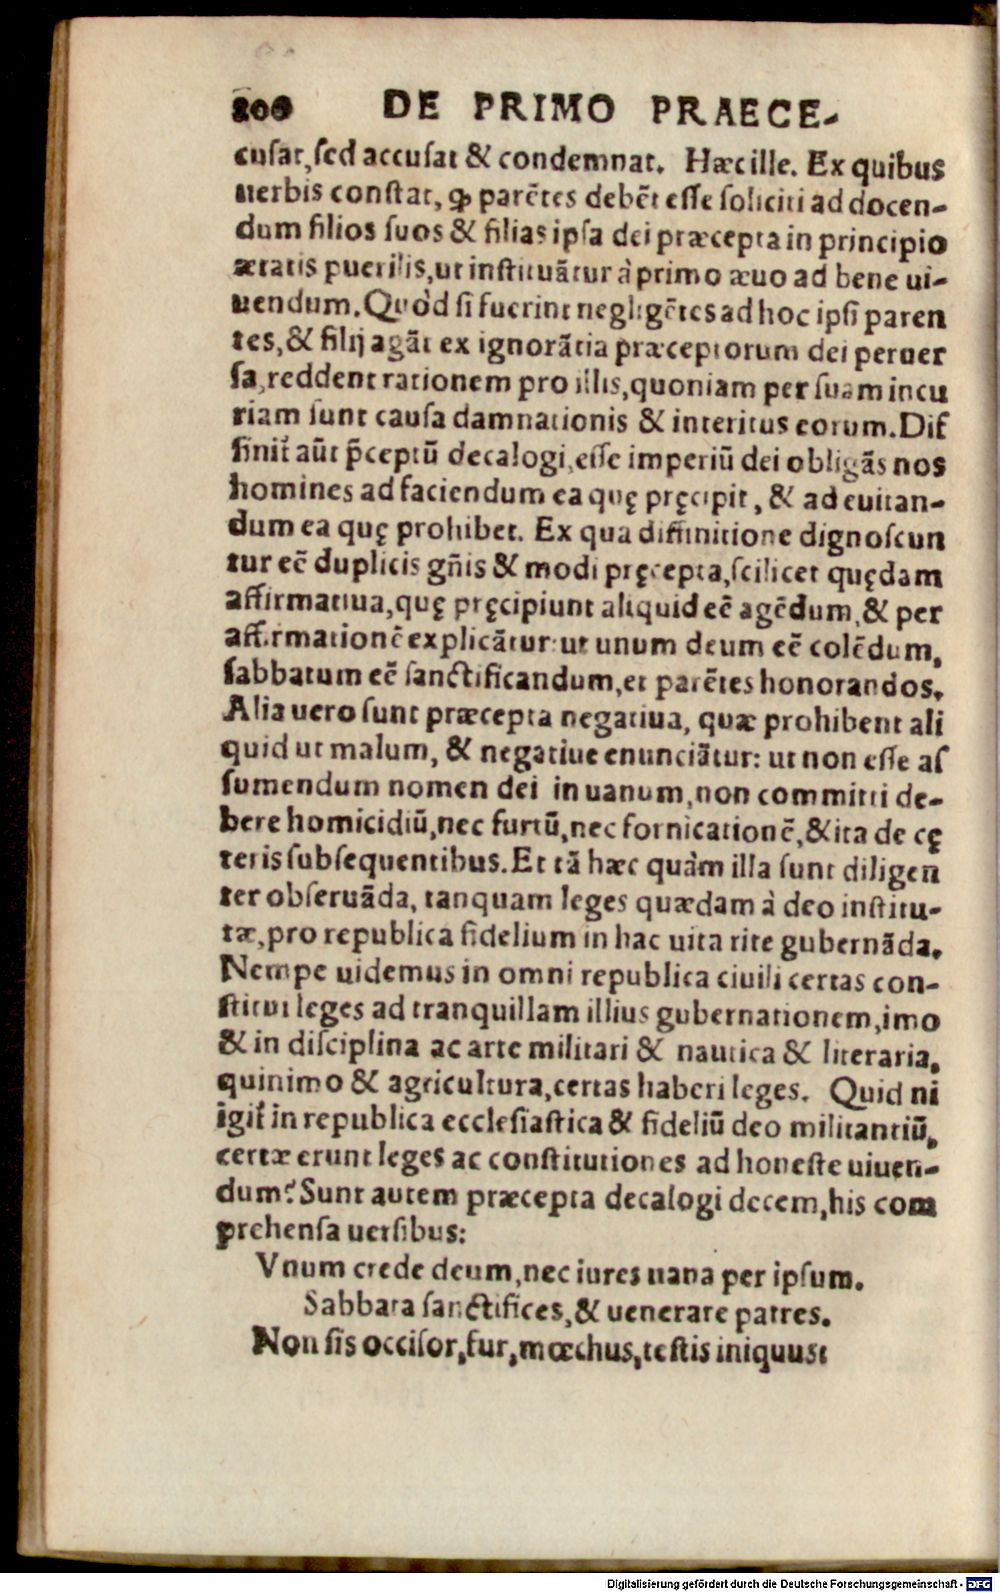 200 DE PRIMO PRAECE-
cusat, sed accusat & condemnat. Hæc ille. Ex quibus
uerbis constat, ꝙ parẽtes debẽt esse soliciti ad docen-
dum filios suos & filias ipsa dei præcepta in principio
ætatis puerilis, ut instituãtur à primo æuo ad bene ui-
uendum. Quòd si fuerint negligẽtes ad hoc ipsi paren
tes, & filij agãt ex ignorãtia præceptorum dei peruer
sa, reddent rationem pro illis, quoniam per suam incu
riam sunt causa damnationis & interitus eorum. Dif
finit᷑ aũt p̃ceptũ decalogi, esse imperiũ dei obligãs nos
homines ad faciendum ea quę pręcipit, & ad euitan-
dum ea quę prohibet. Ex qua diffinitione dignoscun
tur eẽ duplicis gñis & modi pręcepta, scilicet quędam
affirmatiua, quę pręcipiunt aliquid eẽ agẽdum, & per
affirmationẽ explicãtur: ut unum deum eẽ colẽdum,
sabbatum eẽ sanctificandum, et parẽtes honorandos.
Alia uero sunt præcepta negatiua, quæ prohibent ali
quid ut malum, & negatiue enunciãtur: ut non esse as
sumendum nomen dei in uanum, non committi de-
bere homicidiũ, nec furtũ, nec fornicationẽ, & ita de cę
teris subsequentibus. Et tã hæc quàm illa sunt diligen
ter obseruãda, tanquam leges quædam à deo institu-
tæ, pro republica fidelium in hac uita rite gubernãda.
Nempe uidemus in omni republica ciuili certas con-
stitui leges ad tranquillam illius gubernationem, imo
& in disciplina ac arte militari & nautica & literaria,
quinimo & agricultura, certas haberi leges. Quid ni
igit᷑ in republica ecclesiastica & fideliũ deo militantiũ,
certæ erunt leges ac constitutiones ad honeste uiuen-
dum? Sunt autem præcepta decalogi decem, his com
prehensa uersibus:
Vnum crede deum, nec iures uana per ipsum.
Sabbata sanctifices, & uenerare patres.
Non sis occisor, fur, mœchus, testis iniquus:
Digitalisierung gefördert durch die Deutsche Forschungsgemeinschaft - DFG